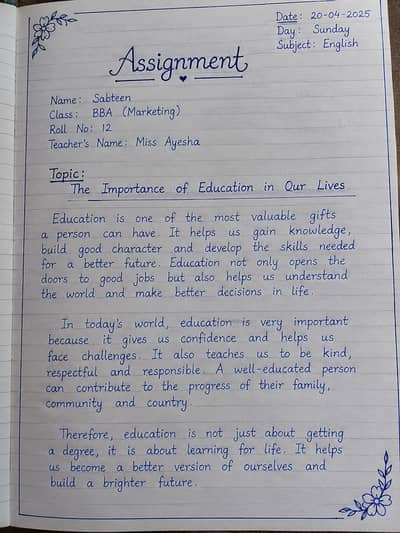 Date: 20-04-2025
Day: Sunday
Subject: English
Assignment
Name: Sabteen
Class: BBA (Marketing)
Roll No: 12
Teacher's Name: Miss Ayesha
Topic:
The Importance of Education in Our Lives
Education is one of the most valuable gifts
a person can have. It helps us gain knowledge,
build good character and develop the skills needed
for a better future. Education not only opens the
doors to good jobs but also helps us understand
the world and make better decisions in life.
In today's world, education is very important
because it gives us confidence and helps us
face challenges. It also teaches us to be kind,
respectful and responsible. A well-educated person
can contribute to the progress of their family,
community and country.
Therefore, education is not just about getting
a degree, it is about learning for life. It helps
us become a better version of ourselves and
build a brighter future.